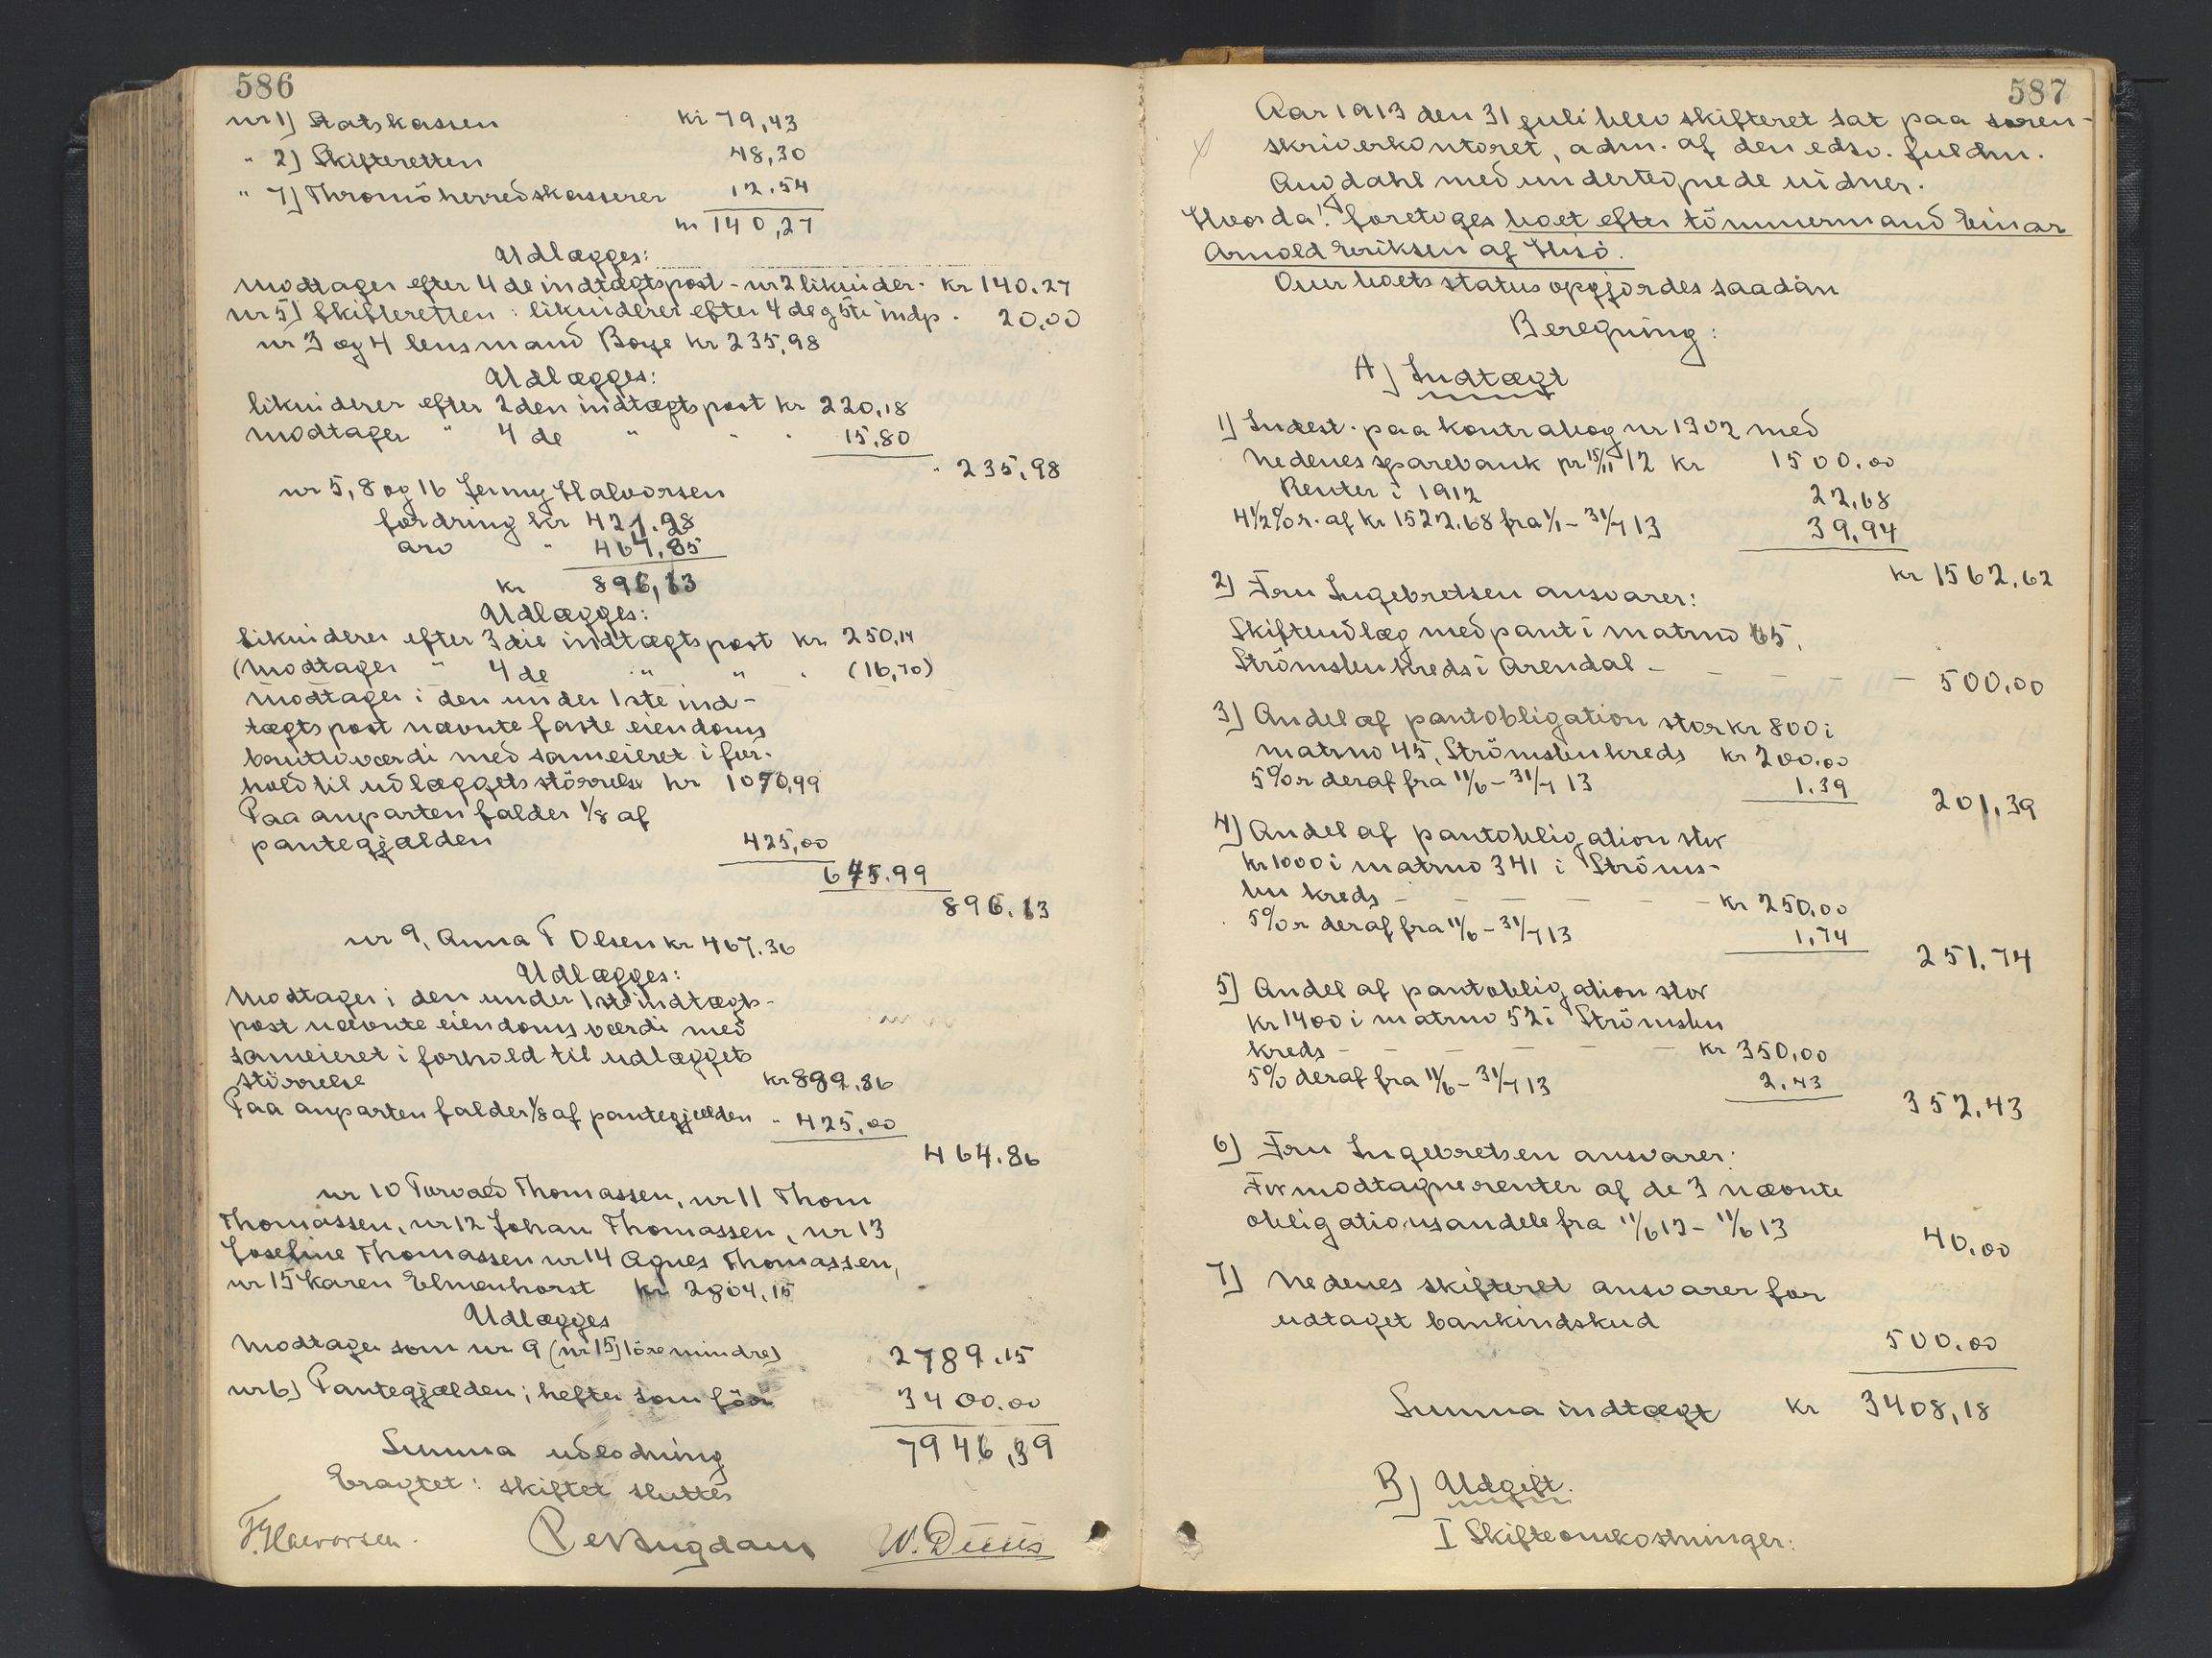 586
nr 1) Statskassen kr 79,43
" 2) Skifteretten 48,30
" 7) Thromö herredskasserer 12.54
kr 140,27
Udlægges:
Modtager efter 4de indtægtspost - nr 2 likvider. kr 140.27
nr 5) Skifteretten: likviderer efter 4de g öti indp. 20.00
nr 3 og 4 lensmand Boye kr 235,98
Udlægges:
likviderer efter 2den indtægtspost kr 220,18
Modtager " 4de " " . 15.80
" 235,98
nr 5, 8 og 16 Jenny Halvorsen
fordring kr 421.28
arv " 467,85
kr 896,13
Udlægges:
likviderer efter 3die indtægtspost kr 250,14
(Modtager " 4de " " . (16,70)
Modtager i den under 1ste ind-
tægtspost nævnte faste eiendoms
bruttoværdi med sameieret i for-
hold til udlæggets störrelse kr 1070,99
Paa anparten falder 1/8 af
pantegjælden 425,00
645.99
896.13
nr 9, Anna T Olsen kr 467.36
Udlægges:
Modtager i den under 1ste indtægts-
post nævnte eiendoms værdi med
sameieret i forhold til udlæggets
störrelse kr 889.86
Paa anparten falder 1/8 af pantegjælden " 425.00
464.86
nr 10 Torvald Thomassen, nr 11 Thom
Thomassen, nr 12 Johan Thomassen, nr 13
Josefine Thomassen nr 14 Agnes Thomassen,
nr 15 Karen Elmenhorst kr 2804,15
Udlægges
Modtager som nr 9 (nr 15) 1 öre mindre) 2789.15
nr 6) Pantegjælden; hefter som för 3400.00
Summa udlodning 7946,39
Eragtet: skiftet sluttes
J. Halvorsen. P e Augdahl W. Duus
587
Aar 1913 den 31 juli blev skifteret sat paa soren-
skriverkontoret, adm. af den edsv. fuldm.
Augdahl med undertegnede vidner.
Hvorda! foretoges boet efter tömmermand Einar
Arnold Eriksen af Hisö.
Over boets status opgjordes saadan
Beregning:
A) Indtægt
1) Indest. paa kontrabog nr 1302 med
Nedenes sparebank pr 15/11 12 kr 1500.00
Renter i 1912 22,68
4 1/2 % r. af kr 1522.68 fra 1/1 - 31/7 13 39,94
kr 1562,62
2) Fru Ingebretsen ansvarer:
Skifteudlæg med pant i matrno 45,
Strömsbu kreds i Arendal - - - - - 500.00
3) Andel af pantobligation stor kr 800 i
matrno 45, Strömsbu kreds kr 200.00
5% r deraf fra 11/6 - 31/7 13 1.39
201,39
4) Andel af pantobligation stor
kr 1000 i matrno 341 i Ströms-
bu kreds - - - - - kr 250.00
5% r deraf fra 11/6 - 31/7 13 1,74
251.74
5) Andel af pantobligation stor
kr 1400 i matrno 52 i Strömsbu
kreds - - - - - kr 350,00
5% deraf fra 11/6 - 31/7 13 2.43
352.43
6) Fru Ingebretsen ansvarer:
For modtagne renter af de 3 nævnte
obligationsandele fra 11/6 12 - 11/6 13 40.00
7) Nedenes skifteret ansvarer for
udtaget bankindskud 500.00
Summa indtægt kr 3408,18
B) Udgift.
I Skifteomkostninger: